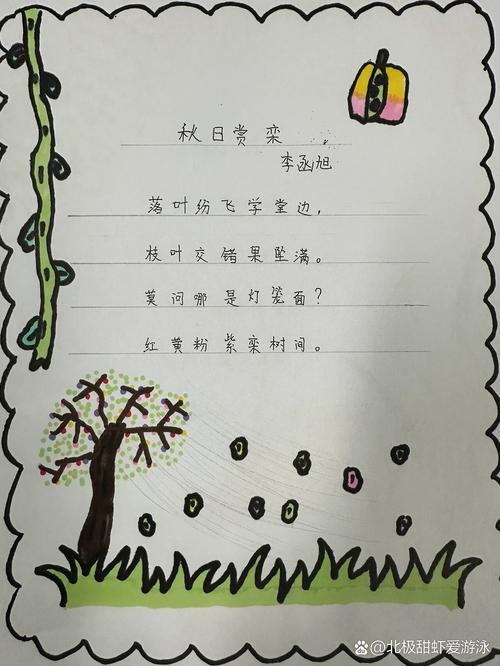 秋日赏栾
李函旭
落叶纷飞学堂边，
枝叶交错果坠满。
莫问哪是灯笼面？
红黄粉紫栾树间。
@北极甜虾爱游泳